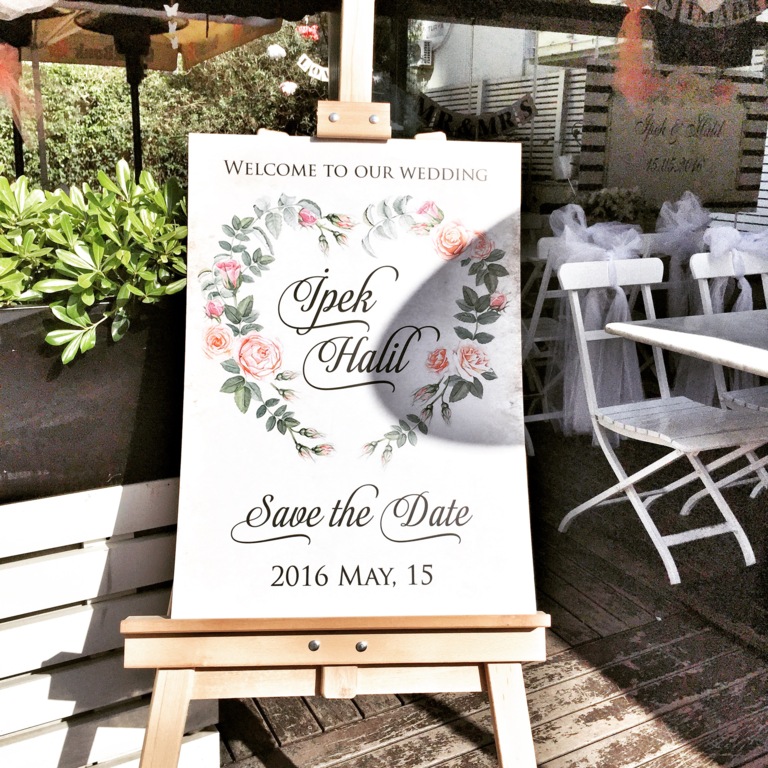 WELCOME TO OUR WEDDING
İpek
Halil
Save the Date
2016 MAY, 15
MR & MRS
İpek & Halil
15.05.2016